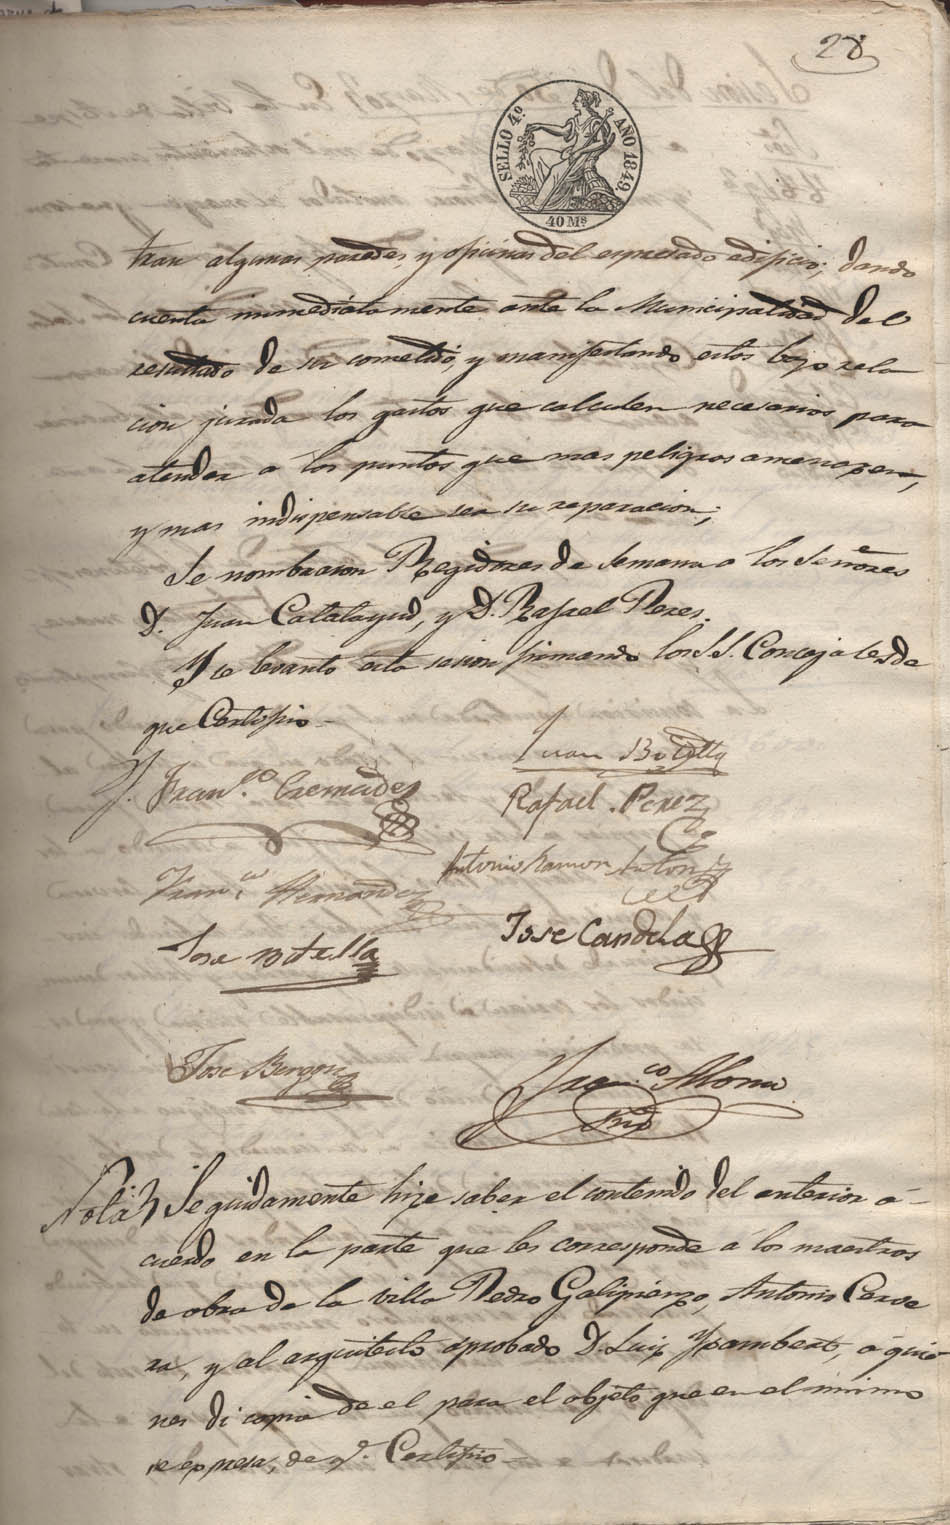 28
SELLO 4º AÑO 1849.
40 Ms
tran algunas paredes, y oficinas del espresado edificio; dando
cuenta inmediatamente ante la Municipalidad del
resultado de su cometido, y manifestando estos bajo rela
cion jurada los gastos que calculen necesarios para
atender a los puntos que mas peligros amenazen,
y mas indispensable sea su reparacion;
Se nombraron Regidores de Semana a los Señores
D. Juan Catalayud, y D. Rafael Peres.
Y se levantó esta sesion firmando los S.S. Concejales de
que Certifico
Juan Botella
Fran.co Cremades
Rafael Perez
Antonio Ramon Anton
Fran.co Hernandez
Jose Candela
Jose Botella
Jose Berg
Fran.co Alonso
Srio
Nota} Seguidamente hize saber el contenido del anterior a-
cuerdo en la parte que les corresponde a los maestros
de obra de la villa Pedro Galipienzo, Antonio Cerve
ra, y al arquitecto aprobado D. Luis Ypambert, a quie
nes di copia de el para el objeto que en el mismo
se espresa, de q.e Certifico